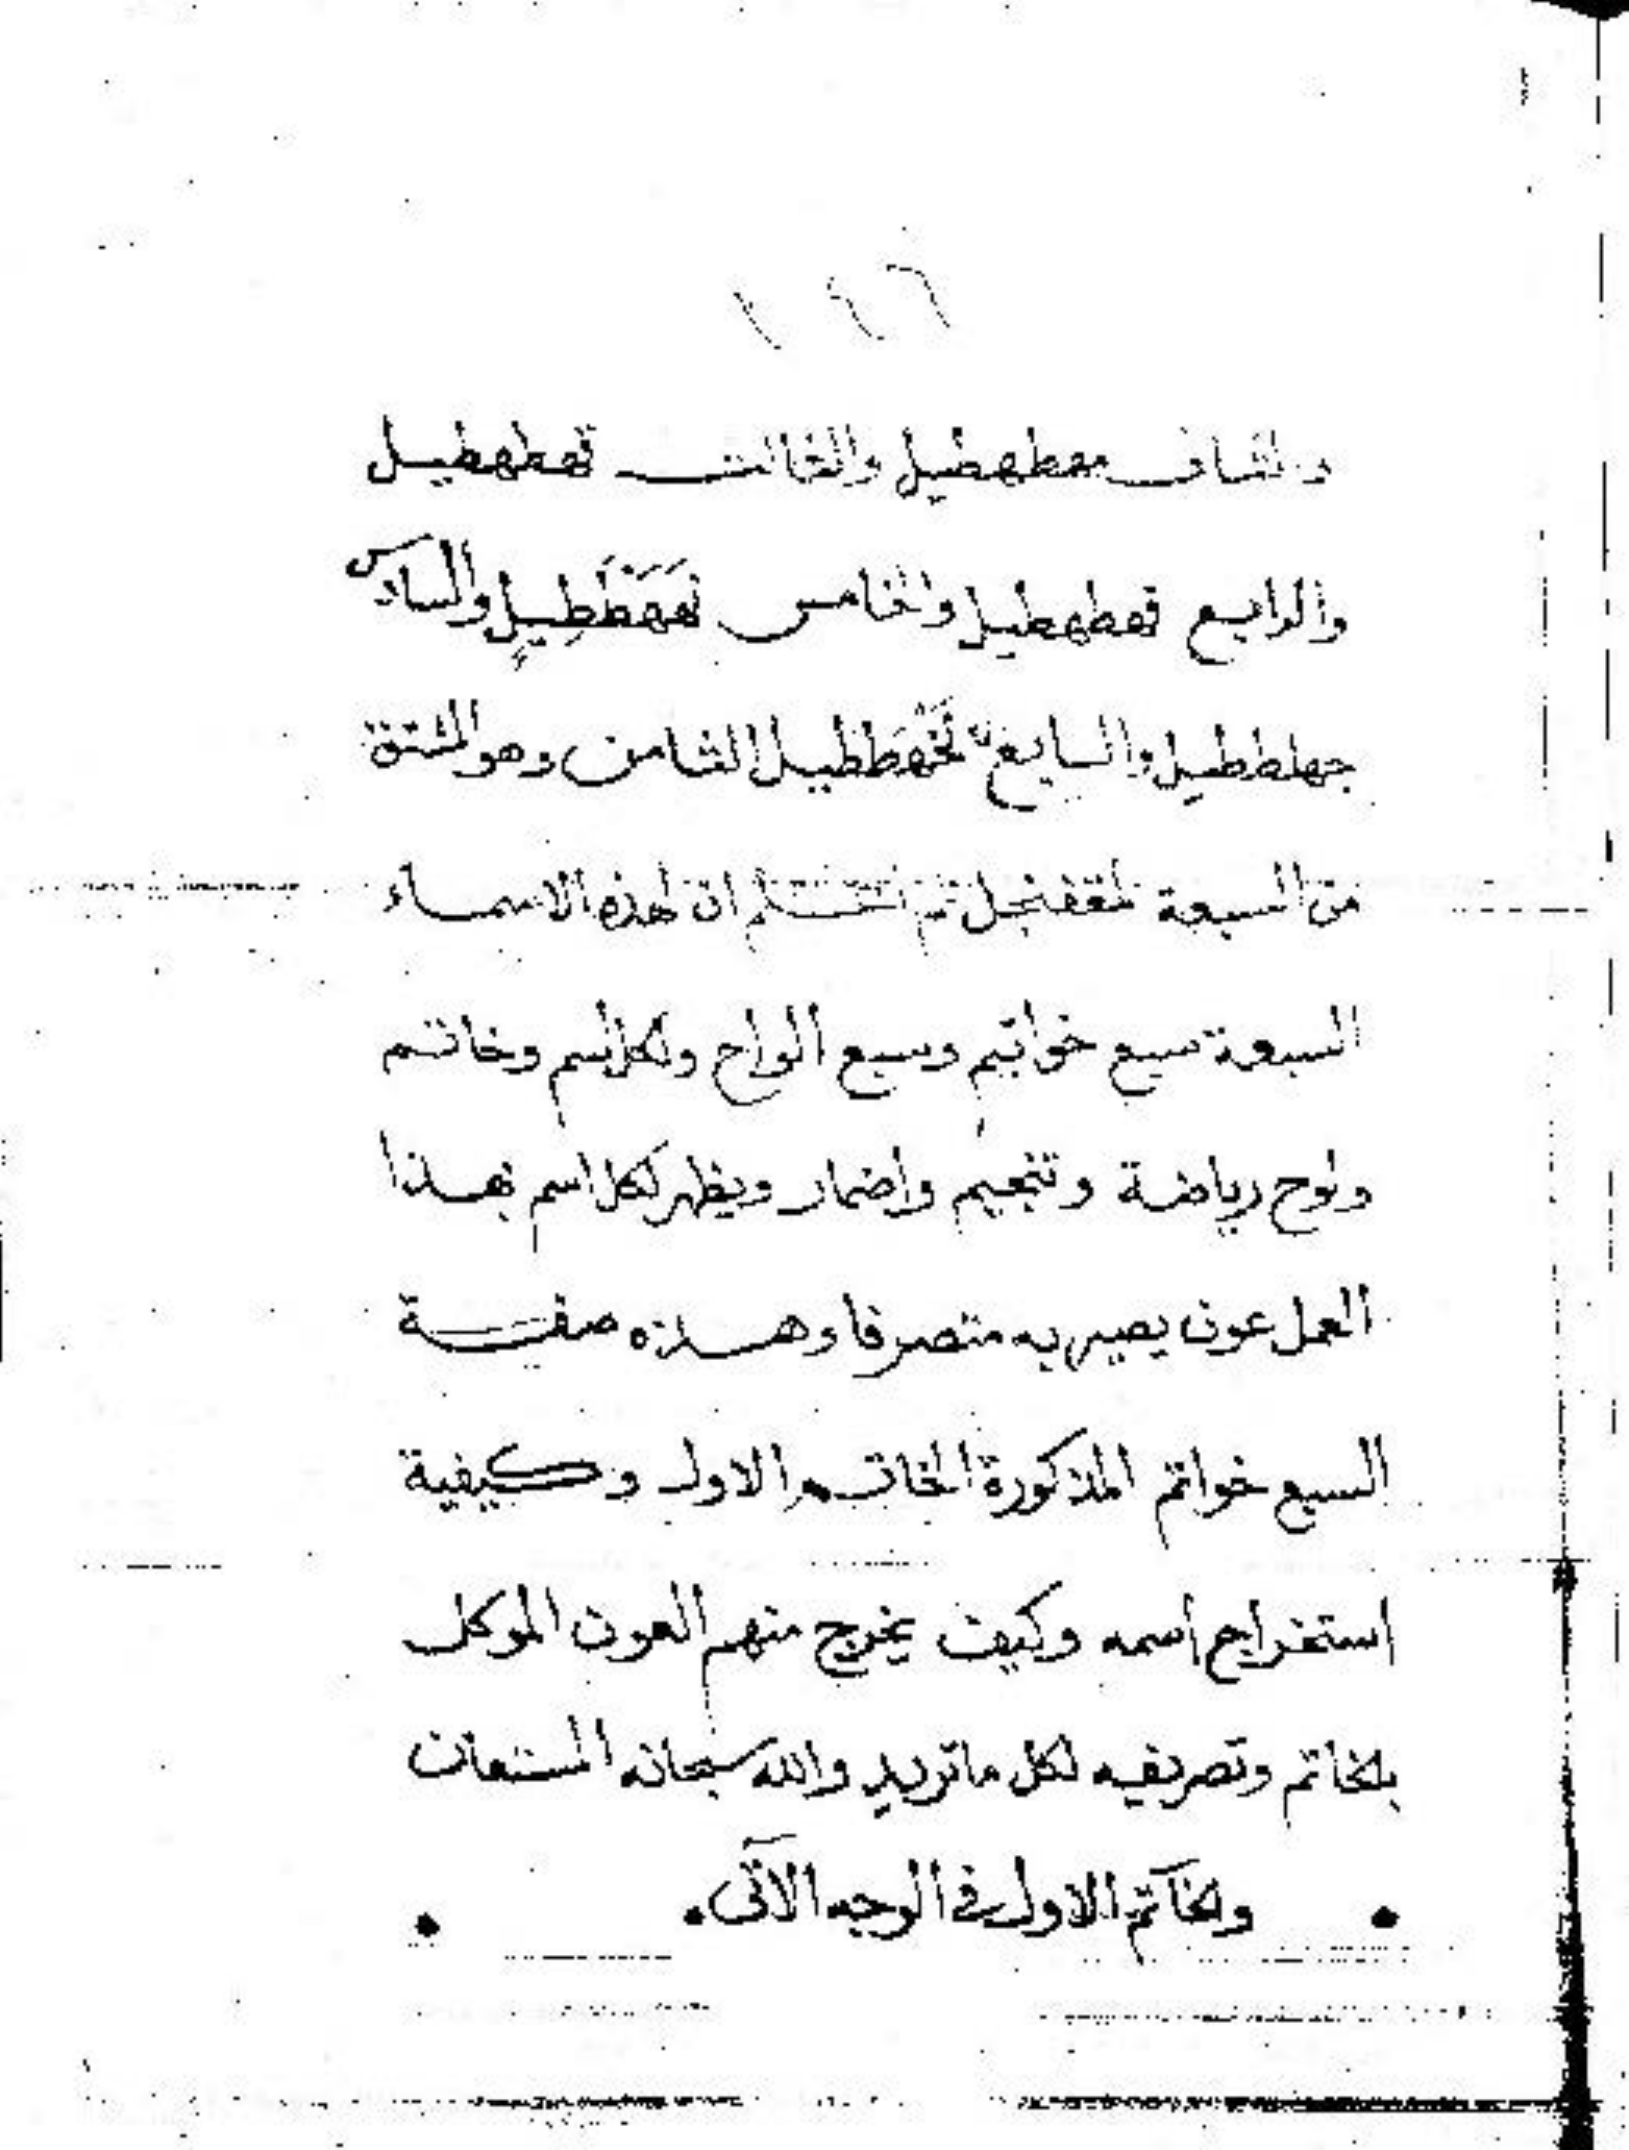 والثانى مهطهطيل والثالث قهطهطيل
والرابع فهطهطيل والخامس نَهَهَطَطِيلٍ والسادس
جهلططيل والسابع لَخْهَططيل الثامن وهو المشتق
من السبعة ثم ان لهذه الاسماء
السبعة سبع خواتيم وسبع الواح ولكل اسم وخاتم
ولوح رياضة وتنجيم واضمار ويظهر لكل اسم بهذا
العمل عون يصير به متصرفا وهذه صفة
السبع خواتم المذكورة الخاتم الاول وكيفية
استخراج اسمه وكيف يخرج منهم العون الموكل
بالخاتم وتصريفه لكل ما تريد والله سبحانه المستعان
• والخاتم الاول فى الوجه الآتى. •